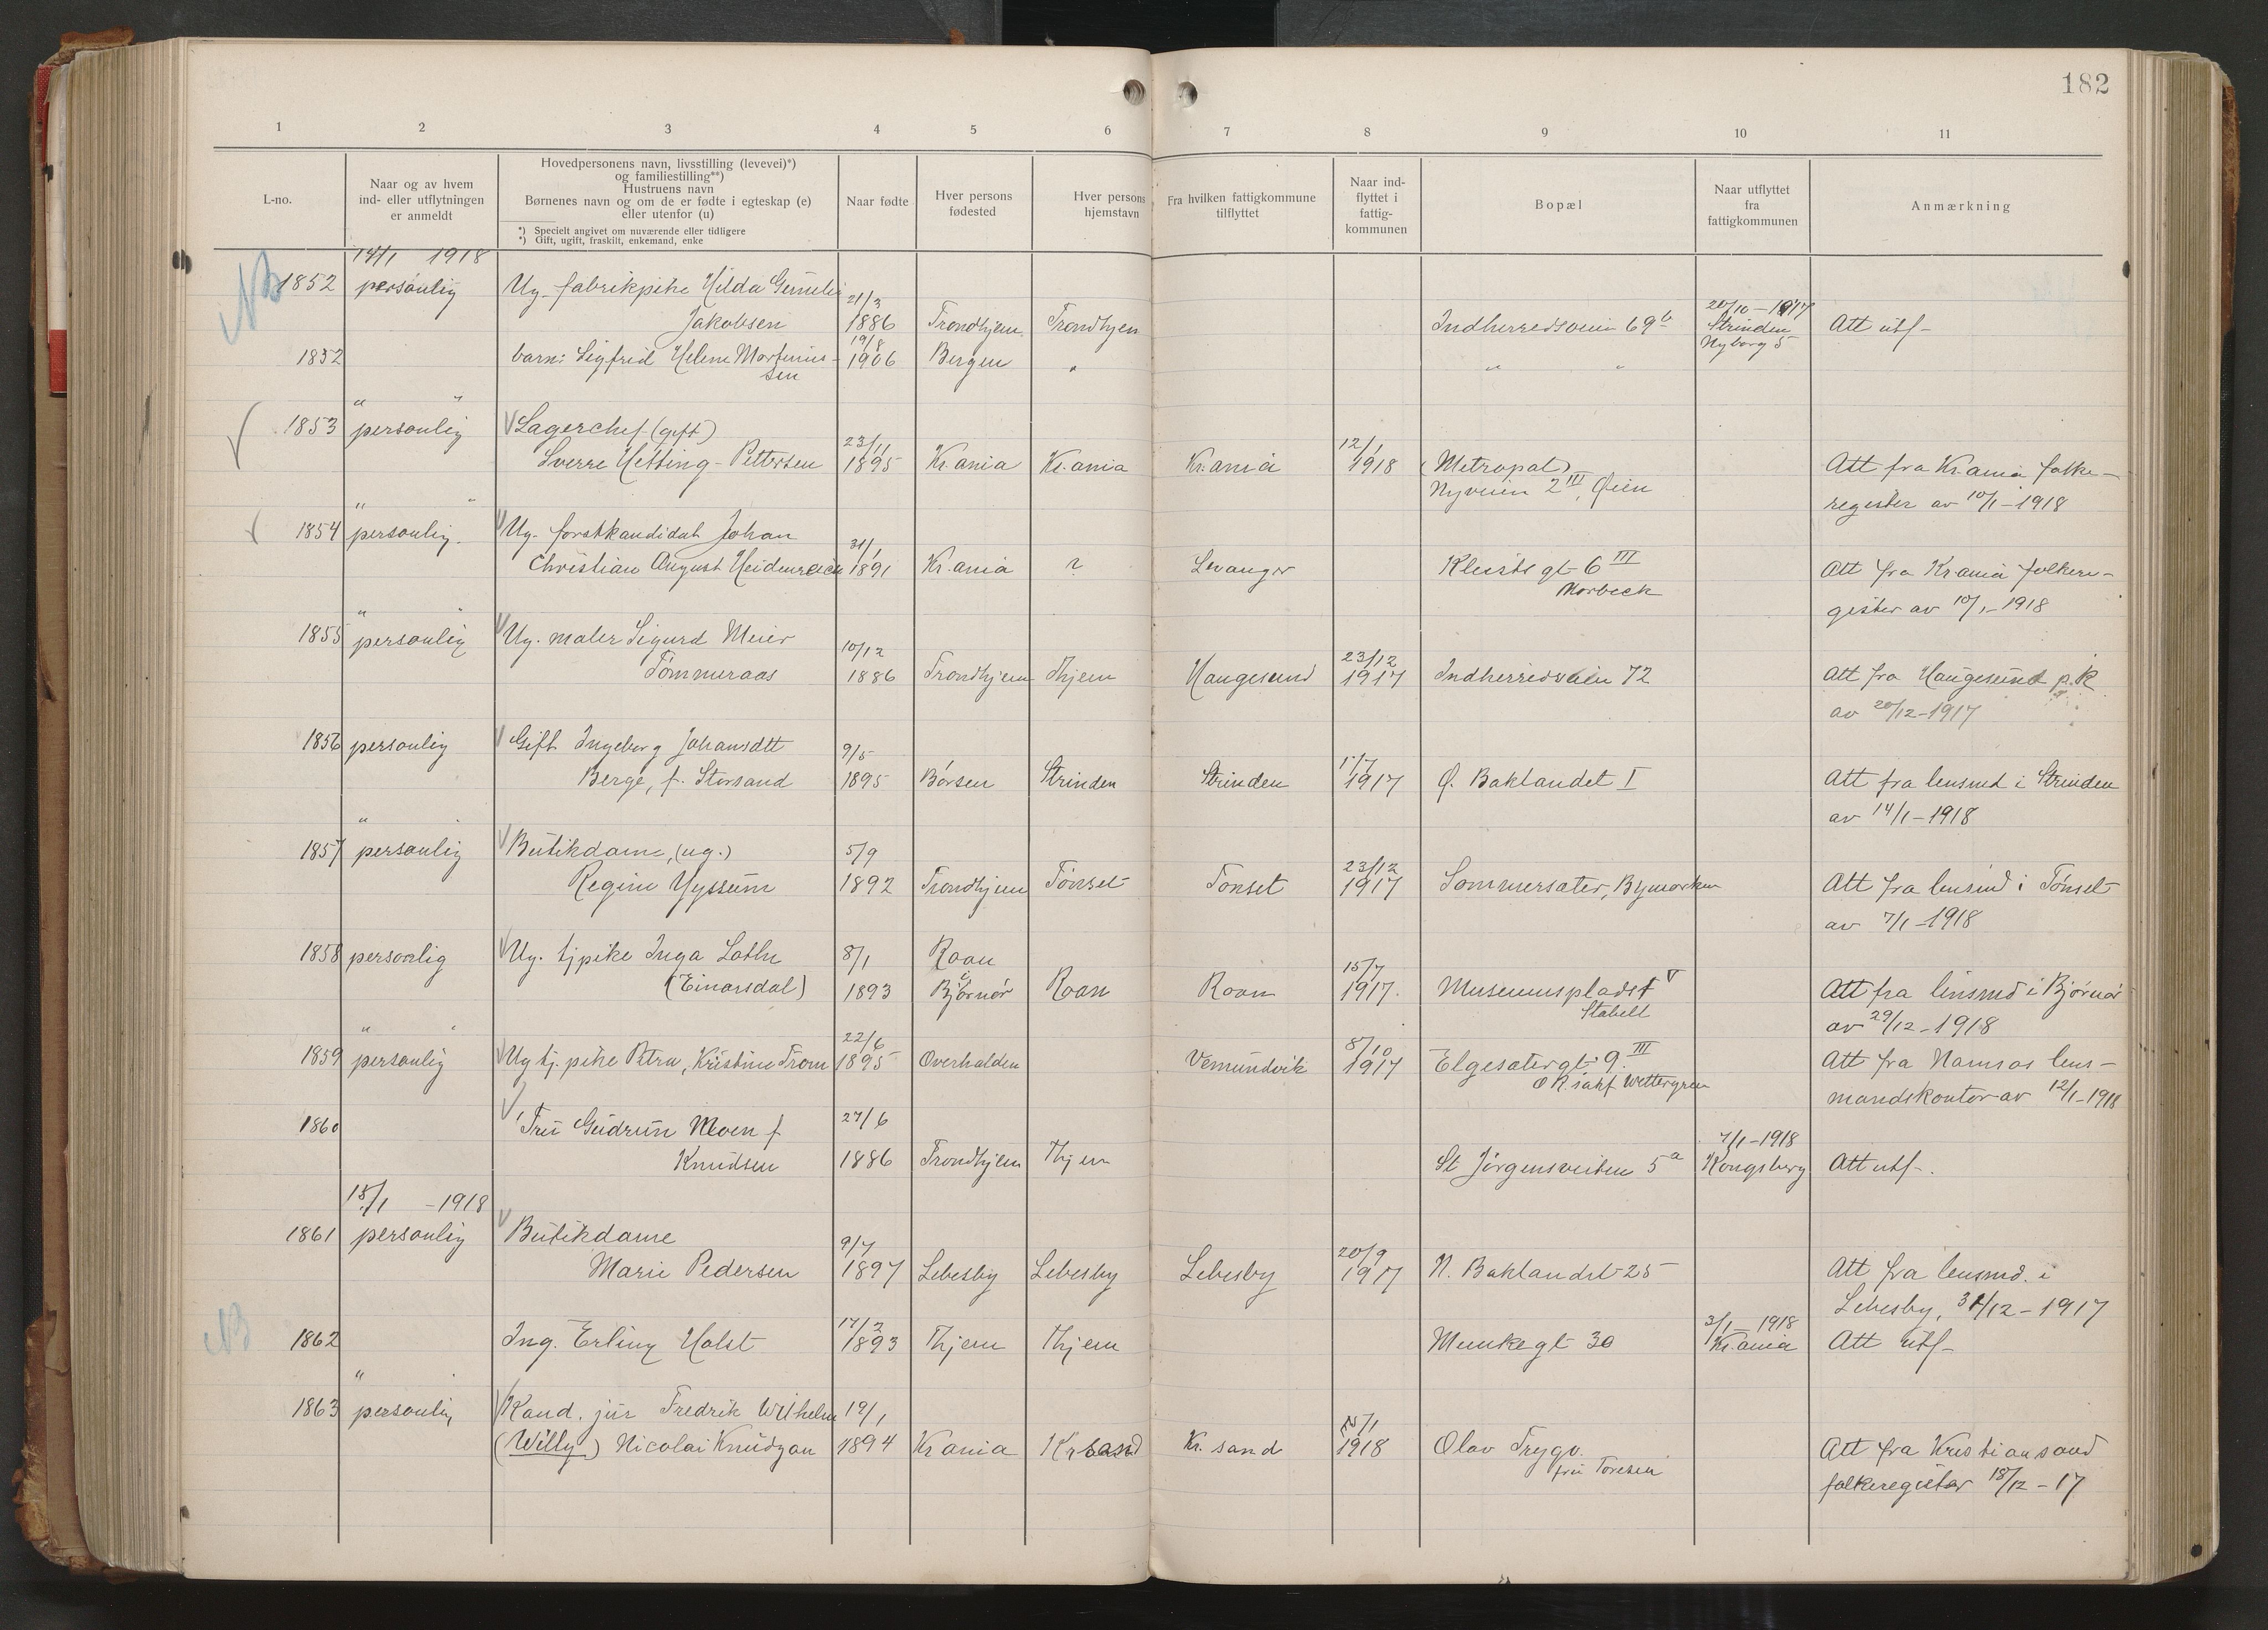 182
1 2 3 4 5 6 7 8 9 10 11
L-no.
Naar og av hvem
ind- eller utflytningen
er anmeldt
Hovedpersonens navn, livsstilling (levevei)*)
og familiestilling**)
Hustruens navn
Børnenes navn og om de er fødte i egteskap (e)
eller utenfor (u)
*) Specielt angivet om nuværende eller tidligere
*) Gift, ugift, fraskilt, enkemand, enke
Naar fødte
Hver persons
fødested
Hver persons
hjemstavn
Fra hvilken fattigkommune
tilflyttet
Naar ind-
flyttet i
fattig-
kommunen
Bopæl
Naar utflyttet
fra
fattigkommunen
Anmærkning
14/1 1918
NB 1852 personlig Ug. fabrikpike Hilda
Jakobsen 21/3 1886 Trondhjem Trondhjem Indherredsveien 69b 20/10-1917 Strinden Nyborg 5 Att utf-
1852 barn: Sigfrid Helene Martinius-
sen 19/8 1906 Bergen " " "
" "
1853 personlig Lagerchef (gift)
Sverre Hetting-Pettersen 23/11 1895 Kr.ania Kr.ania Kr.ania 12/1 1918 (Metropol) Att fra Kr.ania folke-
Nyveien 2 III, Øien register av 10/1-1918
" "
1854 personlig. Ug. forstkandidat Johan
Christian August Heidenreich 31/1 1891 Kr.ania ? Levanger Kleists gt 6 III Att fra Kr.ania folkere-
Morbeck gister av 10/1-1918
" "
1855 personlig Ug. maler Sigurd Meier
Tømmeraas 10/12 1886 Trondhjem Thjem Haugesund 23/12 1917 Indherredsveien 72 Att fra Haugesund p.k
av 20/12-1917
1856 personlig Gift Ingeborg Johansdtt
Berge, f. Storsand 9/5 1895 Børsen Strinden Strinden 1/7 1917 Ø. Baklandet I Att fra lensmd i Strinden
av 14/1-1918
"
1857 personlig Butikdame, (ug.)
Regine Hyssum 5/9 1892 Trondhjem Tønset Tønset 23/12 1917 Sommersæter, Bymarken Att fra lensmd i Tønset
av 7/1-1918
1858 personlig Ug. tjpike Inga Lothe 8/1 Roan
(Einarsdal) 1893 i Bjørnør Roan Roan 15/7 1917. Museumsplads V Att fra lensmd i Bjørnør
Stabell av 29/12-1918
" "
1859 personlig Ug tj. pike Petra, Kristine Trøm 22/6 1895 Overhalden Vemundvik 8/10 1917 Elgesæter gt 9 III Att fra Namsos lens-
Wettergreen mandskontor av 12/1-1918
1860 Fru Gudrun Moen f
Knudsen 27/6 1886 Trondhjem Thjem St Jørgensveiten 5a 7/1-1918 Kongsberg Att utf-.
15/1 -1918
1861 personlig Butikdame
Marie Pedersen 9/7 1897 Lebesby Lebesby Lebesby 20/9 1917 N. Baklandet 25 Att fra lensmd. i
Lebesby, 31/12-1917
NB 1862 Ing. Erling Holst 17/2 1893 Thjem Thjem Munkegt 30 3/1-1918 Kr.ania Att utf-
"
1863 personlig Kand. jur Fredrik Wilhelm 19/1
(Willy) Nicolai Knudzon 1894 Kr ania Kr.sand Kr.sand 1918 Olav Trygv. Att fra Kristiansand
fru Toresen folkeregister 18/12-17